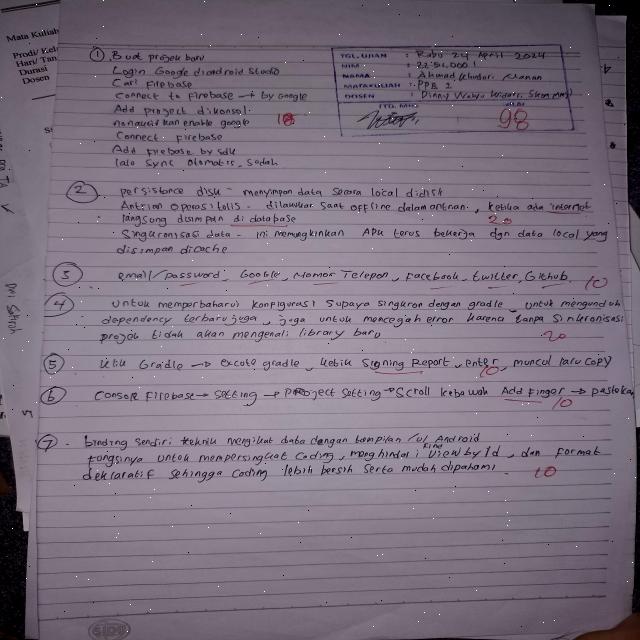 Mata Kuliah
Prodi/ Kel
Hari/ Tan
Durasi
Dosen
TGL. UJIAN : Rabu 24 April 2024
NIM : 22510001
NAMA : Ahmad Khudori Manan
MATAKULIAH : PPB 2
DOSEN : Dinny Wahyu
TTD. MHS
NILAI
98
1 Buat projek baru
Login Google di android Studio
Cari Firebase
Connect to Firebase → by Google
Add project di konsol
nonaktifkan enable google 18
Connect Firebase
Add Firebase by sdk
lalu Sync otomatis, Sudah
2 persistance disk - menyimpan data secara local didisk
Antrian operasi tulis - dilakukan saat offline dalam antrian, ketika ada internet
langsung disimpan di database 20
Singkronisasi data - ini memungkinkan APK terus bekerja dgn data local yang
disimpan dicache
3 email/password, Google, Nomor Telepon, Facebook, twitter, Github. 10
4 untuk memperbaharui konfigurasi supaya singkron dengan gradle, untuk mengunduh
dependency terbaru juga, juga untuk mencegah error karena tanpa sinkronisasi
projek tidak akan mengenali library baru 20
5 klik Gradle → excute gradle, ketik Signing Report, enter, muncul lalu copy
10
6 Console Firebase → setting → project setting → Scroll kebawah Add Finger → paste
10
7. binding sendiri teknik mengikat data dengan tampilan /ui Android
fungsinya untuk mempersingkat Coding, menghindari Find View by Id, dan format
deklaratif sehingga Coding lebih bersih serta mudah dipahami. 10